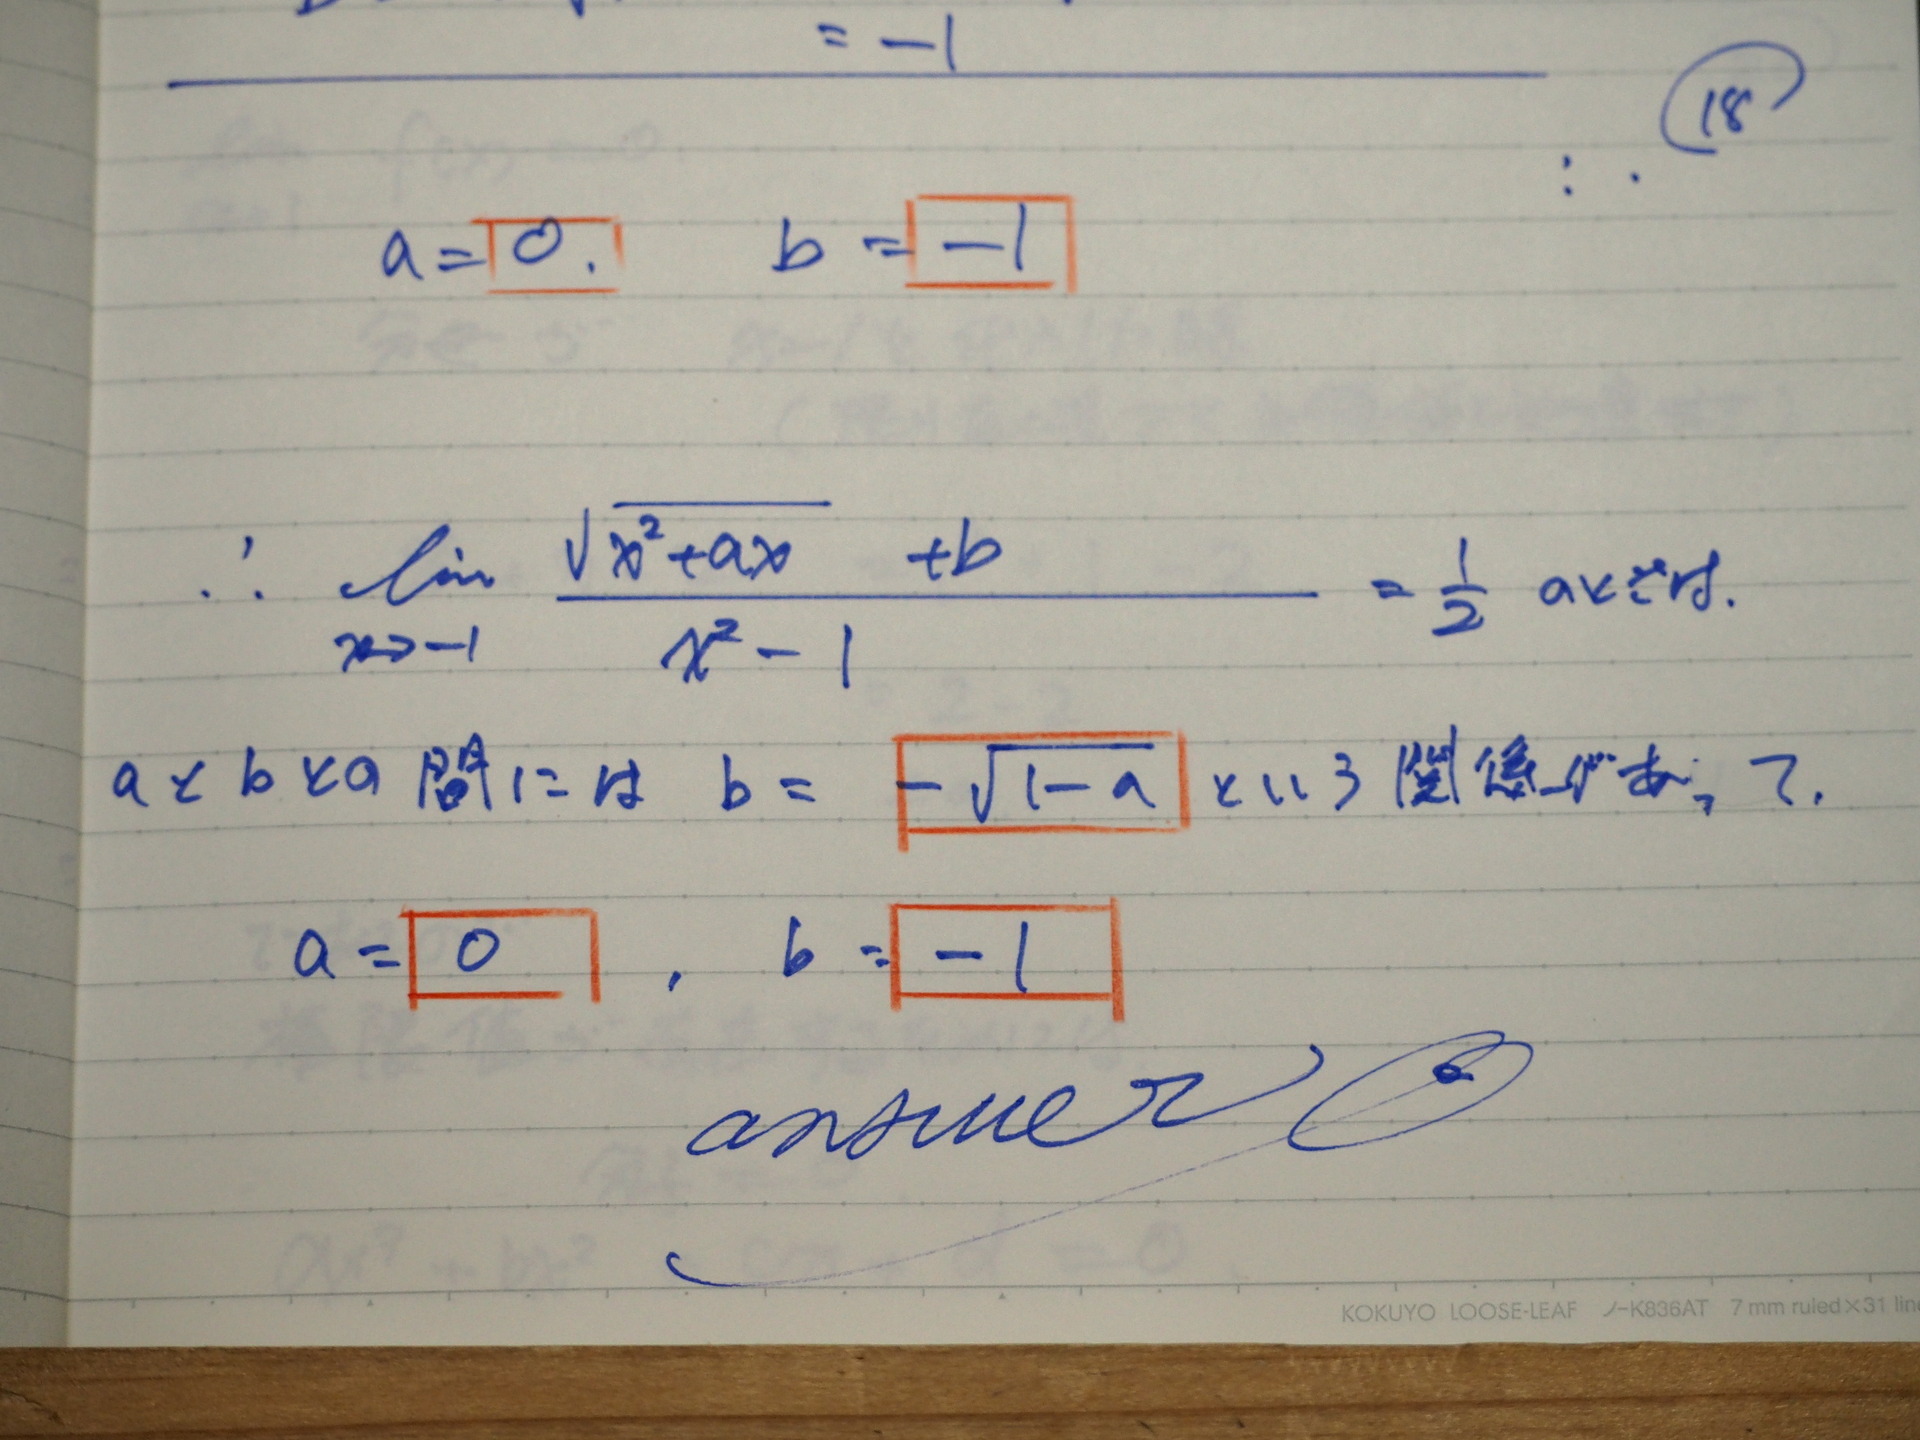 = -1
18
a = 0. b = -1
∴ lim x→-1 √(x²+ax) +b / x²-1 = 1/2 のときは.
aとbとの間には b = -√(1-a) という関係があって.
a = 0 , b = -1
answer
KOKUYO LOOSE-LEAF ノ-K836AT 7 mm ruled×31 line